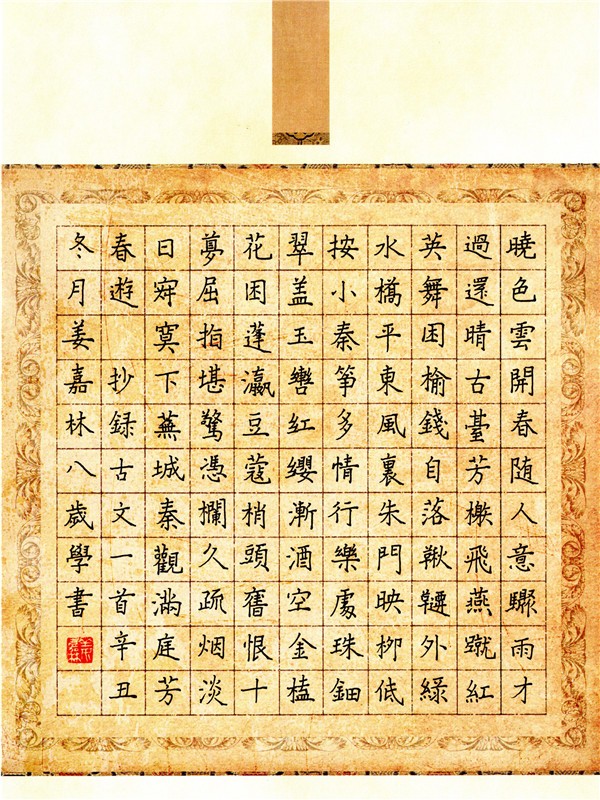 曉色雲開春随人意驟雨才
過還晴古臺芳榭飛燕蹴紅
英舞困榆錢自落鞦韆外緑
水橋平東風裏朱門映柳低
按小秦筝多情行樂處珠鈿
翠盖玉轡紅纓漸酒空金榼
花困蓬瀛豆蔻梢頭舊恨十
夢屈指堪驚憑欄久疏烟淡
日寂寞下蕪城秦觀滿庭芳
春遊 抄録古文一首辛丑
冬月姜嘉林八歲學書